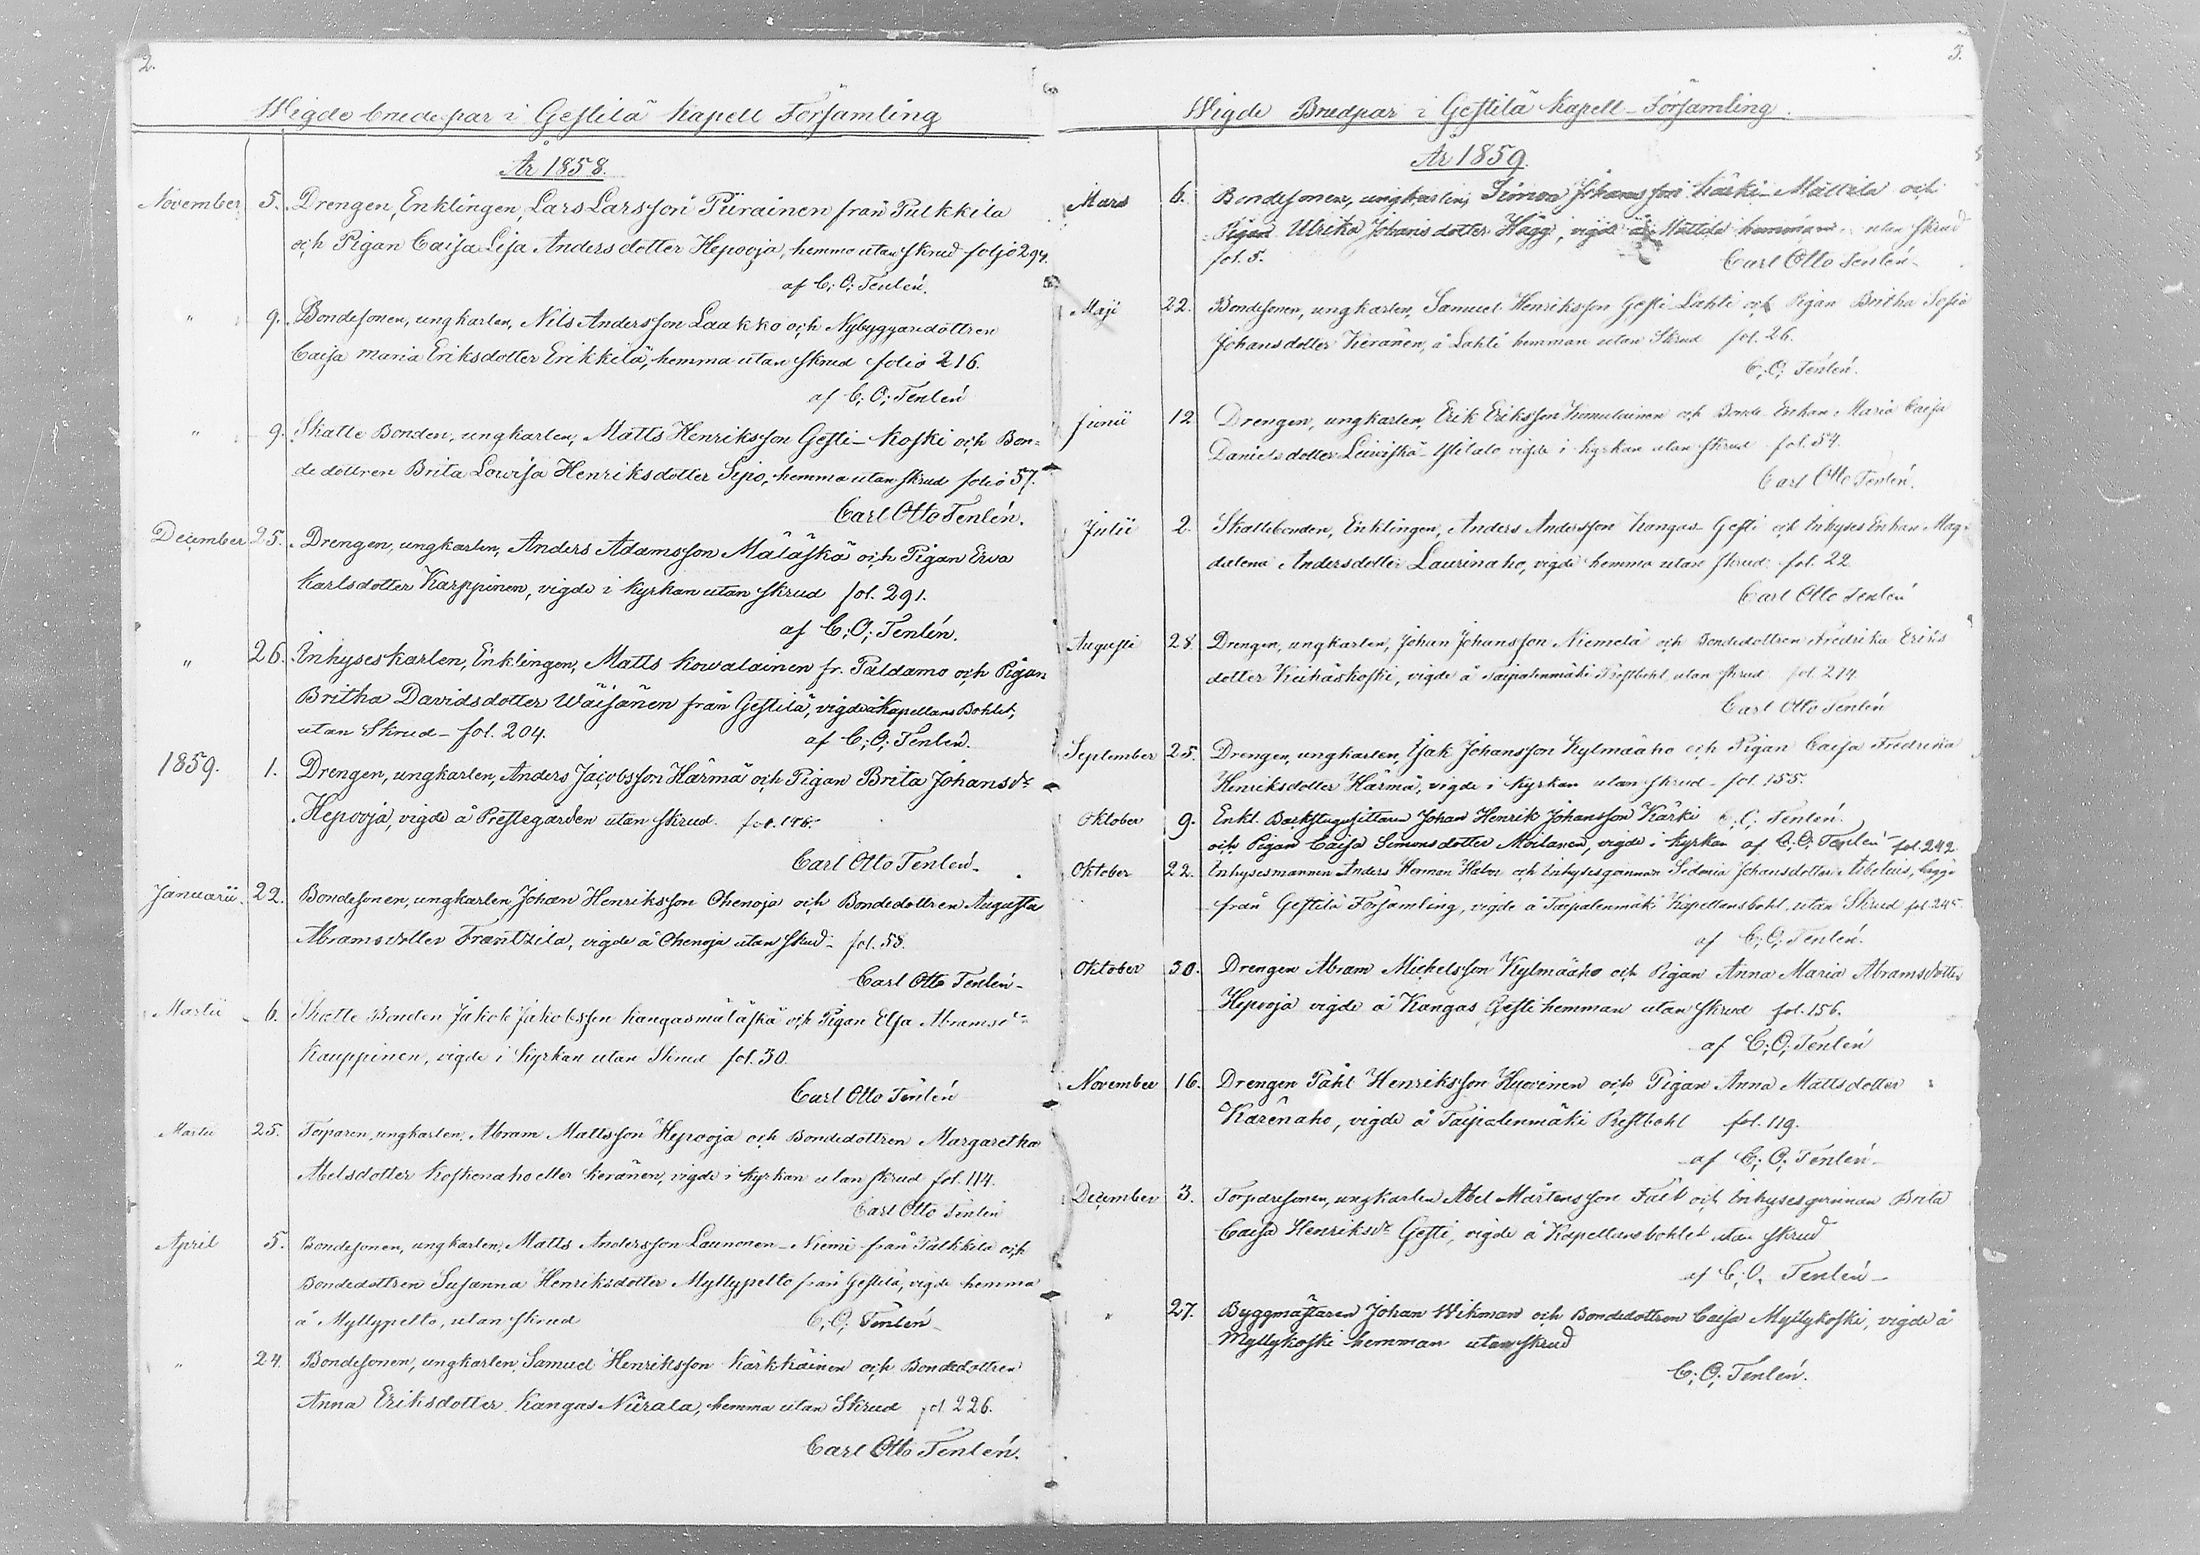 2.
Wigde brudepar i Gestilä Kapell Församling
År 1858.
November 5. Drengen, Enklingen, Lars Larsson Piirainen från Pulkkila
och Pigan Caisa Lisa Andersdotter Hepooja, hemma utan skrud foljo 294.
af C; O; Tenlén.
" 9. Bondesonen, ungkarlen, Nils Andersson Laakko och Nybyggaredottren
Caisa Maria Eriksdotter Erikkilä, hemma utan skrud folio 216.
af C; O; Tenlén
" 9. Skatte Bonden, ungkarlen, Matts Henriksson Gesti-Koski och Bon-
dedottren Brita Lowisa Henriksdotter Sipo, hemma utan skrud folio 57.
Carl Otto Tenlén.
December 25. Drengen, ungkarlen, Anders Adamsson Mäläskä och Pigan Ewa
Karlsdotter Karppinen, vigde i Kyrkan utan skrud fol. 291.
af C; O; Tenlén.
" 26. Inhyseskarlen, Enklingen, Matts Kowalainen fr. Paldamo och Pigan
Britha Davidsdotter Wäisänen från Gestilä, vigde å Kapellans Bohlet,
utan Skrud - fol. 204. af C; O; Tenlén.
1859. 1. Drengen, ungkarlen, Anders Jacobsson Härmä och Pigan Brita Johansdr
Hepooja, vigde å Prestegården utan skrud. fol. 146.
Carl Otto Tenlén.
Januarii. 22. Bondesonen, ungkarlen Johan Henriksson Ohenoja och Bondedottren Augusta
Abramsdotter Frantzila, vigde å Ohenoja utan skrud - fol. 58.
Carl Otto Tenlén -
Martii 6. Skatte Bonden Jakob Jakobsson Kangasmäläskä och Pigan Elsa Abramsdr
Kauppinen, vigde i Kyrkan utan Skrud fol. 30.
Carl Otto Tenlén
Martii 25. Torparen, ungkarlen, Abram Mattsson Hepooja och Bondedottren Margaretha
Abelsdotter Koskenaho eller Keränen, vigde i Kyrkan utan skrud fol. 114.
Carl Otto Tenlén
April 5. Bondesonen, ungkarlen, Matts Andersson Launonen-Niemi från Pulkkila och
Bondedottren Susanna Henriksdotter Myllypelto från Gestilä, vigde hemma
å Myllypelto, utan skrud C; O; Tenlén -
" 24. Bondesonen, ungkarlen, Samuel Henriksson Kärkkäinen och Bondedottren
Anna Eriksdotter Kangas Niirala, hemma utan Skrud fol. 226.
Carl Otto Tenlén.
3.
Wigde Brudpar i Gestilä Kapell-Församling.
År 1859.
Mars 6. Bondesonen, ungkarlen, Simon Johansson Kärki-Mattila och
Pigan Ulrika Johansdotter Hägg, vigde å Mattila hemman utan skrud
fol. 5. Carl Otto Tenlén -
Maji 22. Bondesonen, ungkarlen, Samuel Henriksson Gesti-Lahti och Pigan Britha Sofia
Johansdotter Keränen, å Lahti hemman utan Skrud fol. 26.
C; O; Tenlén.
Junii 12 Drengen, ungkarlen, Erik Eriksson Kumulainen och Bonde Enkan Maria Caisa
Danielsdotter Leiviskä-Ylitalo vigde i Kyrkan utan skrud fol. 54.
Carl Otto Tenlén.
Julii 2. Skattebonden, Enklingen, Anders Andersson Kangas-Gesti och Inhyses Enkan Mag-
dalena Andersdotter Laurinaho, vigde hemma utan skrud fol. 22
Carl Otto Tenlén
Augusti 28. Drengen, ungkarlen, Johan Johansson Niemelä och Bondedottren Fredrika Eriks
dotter Keihäskoski, vigde å Taipalenmäki Prestbohl, utan skrud fol. 274
Carl Otto Tenlén
September 25. Drengen, ungkarlen, Isak Johansson Kylmäaho och Pigan Caisa Fredrika
Henriksdotter Härmä, vigde i Kyrkan utan skrud - fol. 155.
C; O; Tenlén.
Oktober 9. Enkl. Backstugusittaren Johan Henrik Johansson Kärki
och Pigan Caisa Simonsdotter Moilanen, vigde i Kyrkan af C; O; Tenlén - fol. 242
Oktober 22. Inhysesmannen Anders Herman och Inhyseqvinnan Sidonia Johansdotter
från Gestilä Församling, vigde å Taipalenmäki Kapellansbohl, utan Skrud fol. 245.
af C; O; Tenlén.
Oktober 30. Drengen Abram Mickelsson Kylmäaho och Pigan Anna Maria Abramsdotter
Hepooja vigde å Kangas Gesti hemman utan skrud fol. 156.
af C; O; Tenlén
November 16. Drengen Påhl Henriksson Huovinen och Pigan Anna Mattsdotter
Karenaho, vigde å Taipalenmäki Prestbohl fol. 119.
af C; O; Tenlén -
December 3. Torparesonen, ungkarlen Abel Mårtensson Fält och Inhysesqvinnan Brita
Caisa Henriksdr Gesti, vigde å Kapellansbohlet utan skrud
af C; O. Tenlén -
" 27. Byggmästaren Johan Wikman och Bondedottren Caisa Myllykoski, vigde å
Myllykoski hemman utan skrud
C; O; Tenlén.